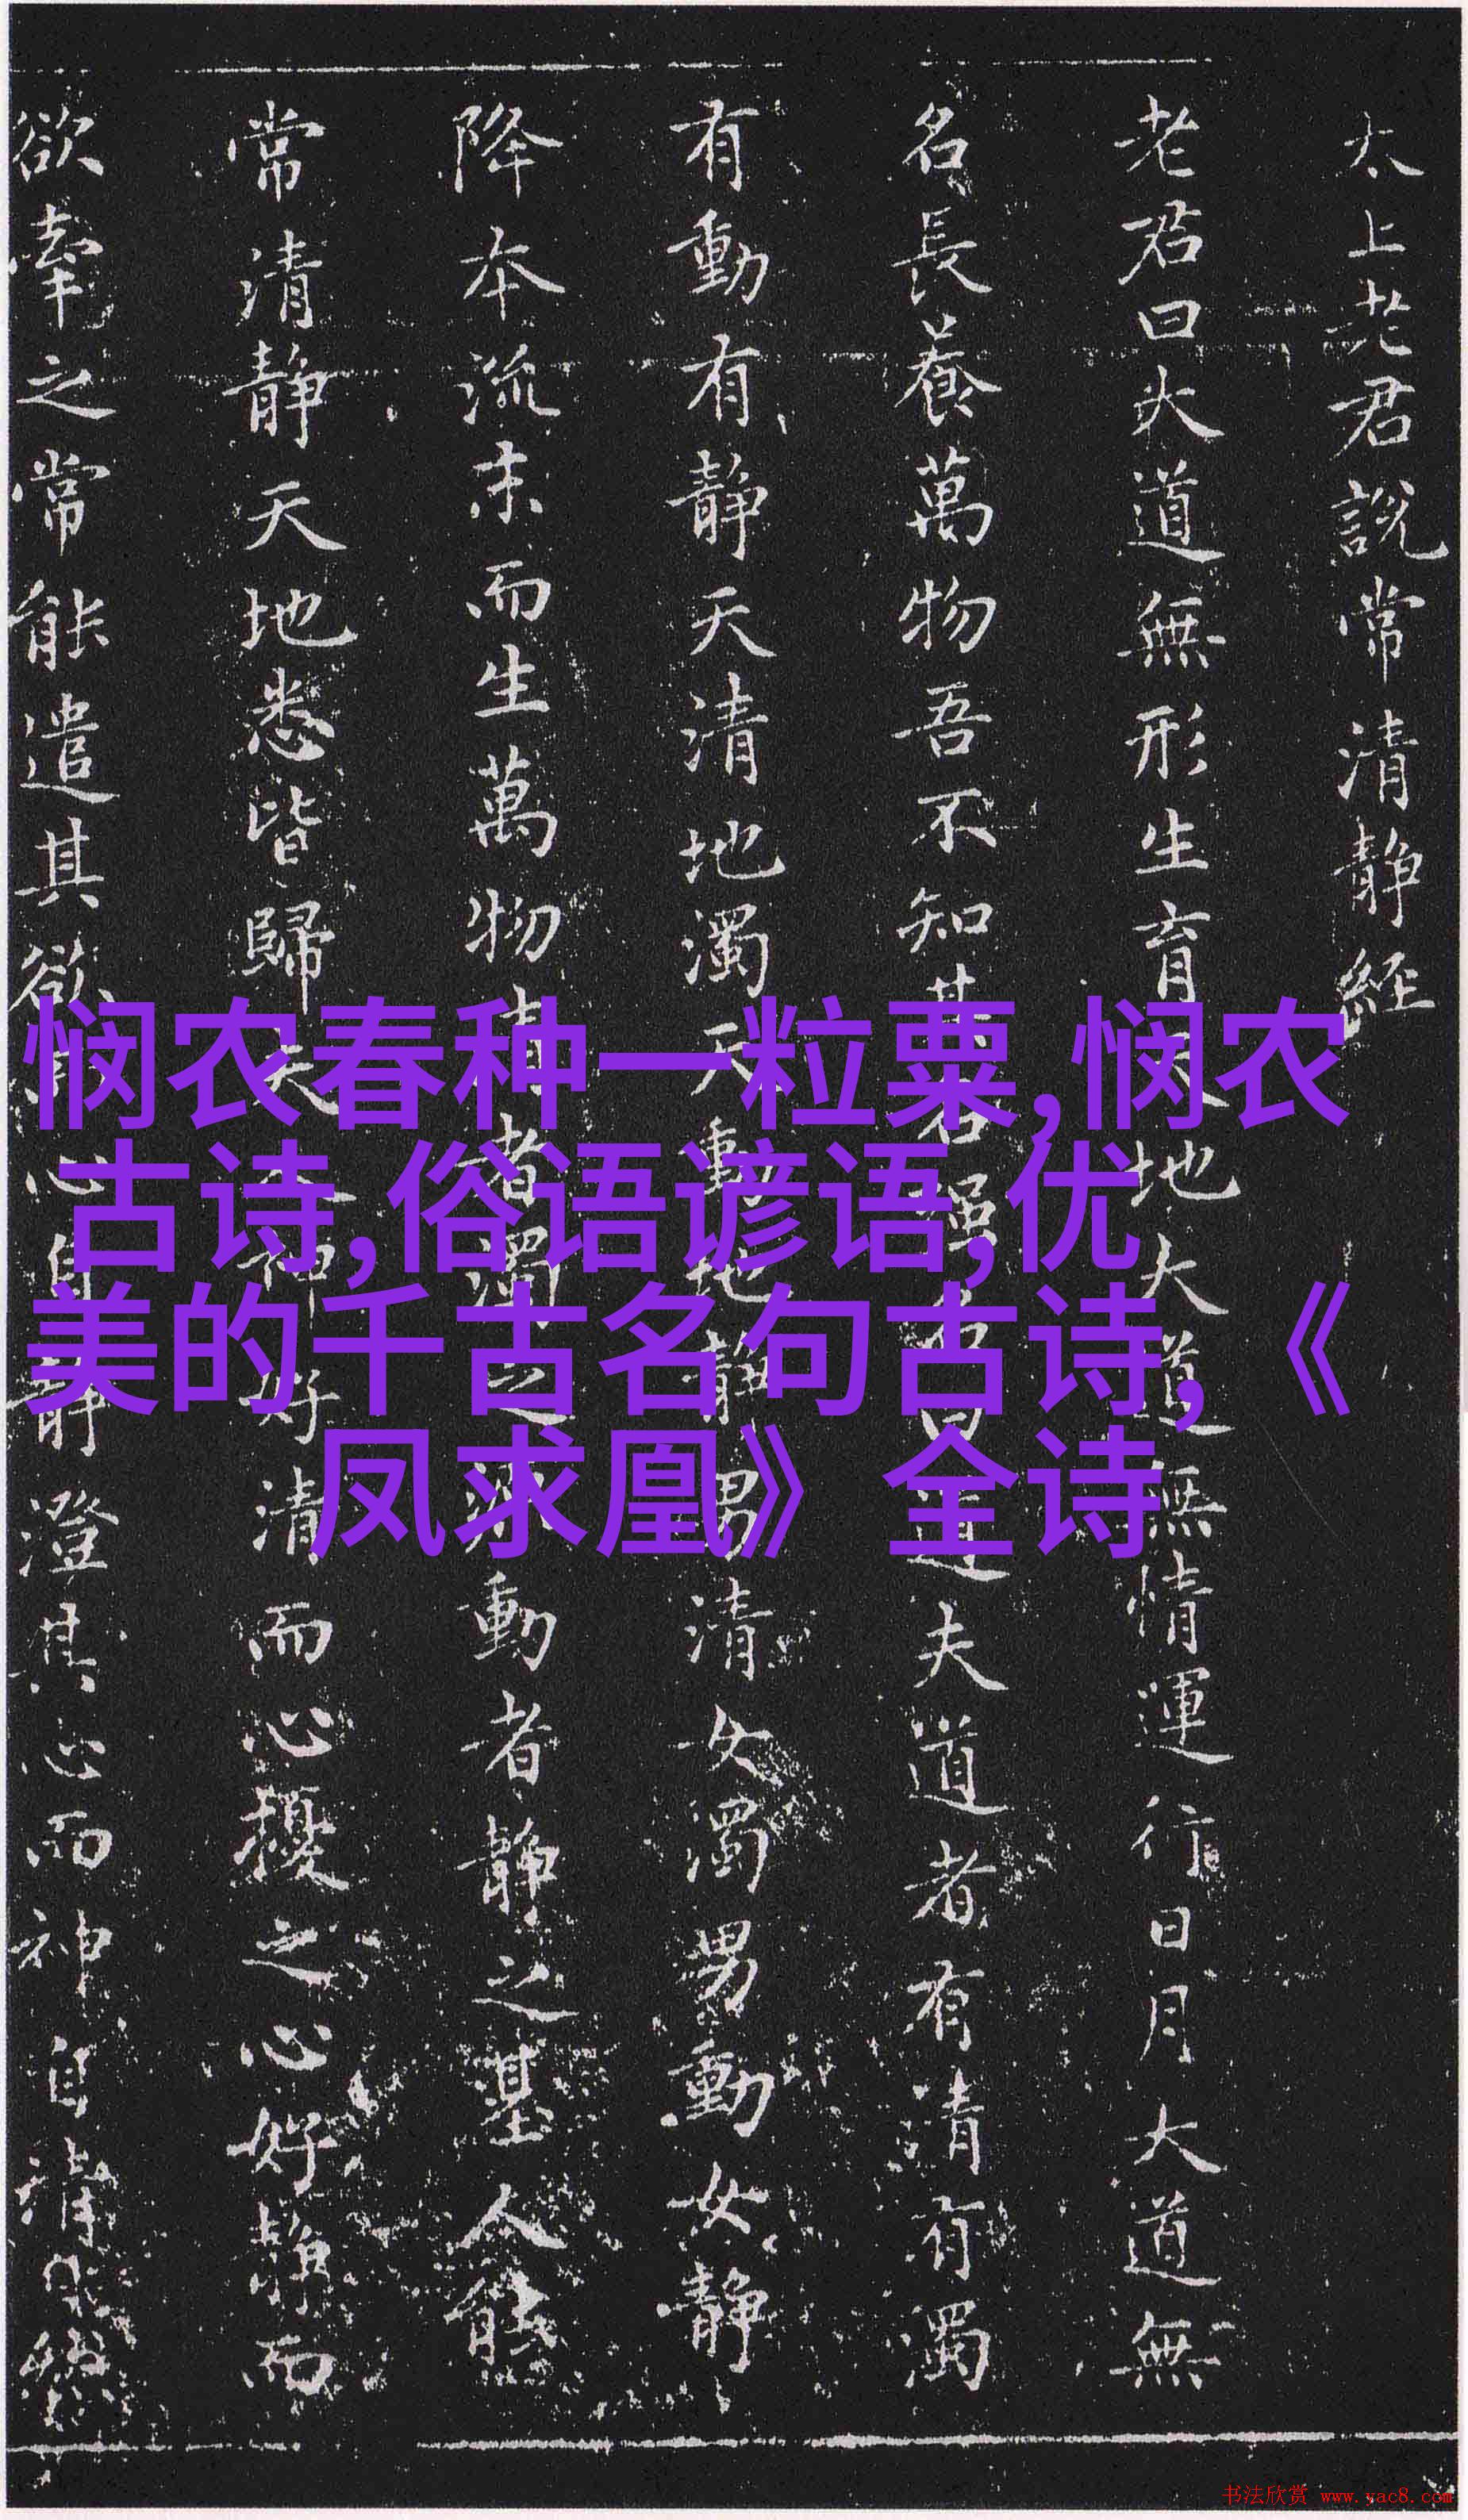 太上老君說常清靜經
老君曰大道無形生育天地大道無情運行日月大道無
名長養萬物吾不知其名強名曰道夫道者有清有濁
有動有靜天清地濁天動地靜男清女濁男動女靜
降本流末而生萬物清者濁之源動者靜之基人能
常清靜天地悉皆歸夫人神好清而心擾之心好靜而
欲牽之常能遣其欲而心自靜澄其心而神自清自然
悯农春种一粒粟,悯农
古诗,俗语谚语,优
美的千古名句古诗,《
凤求凰》全诗
书法欣赏 www.yac8.com